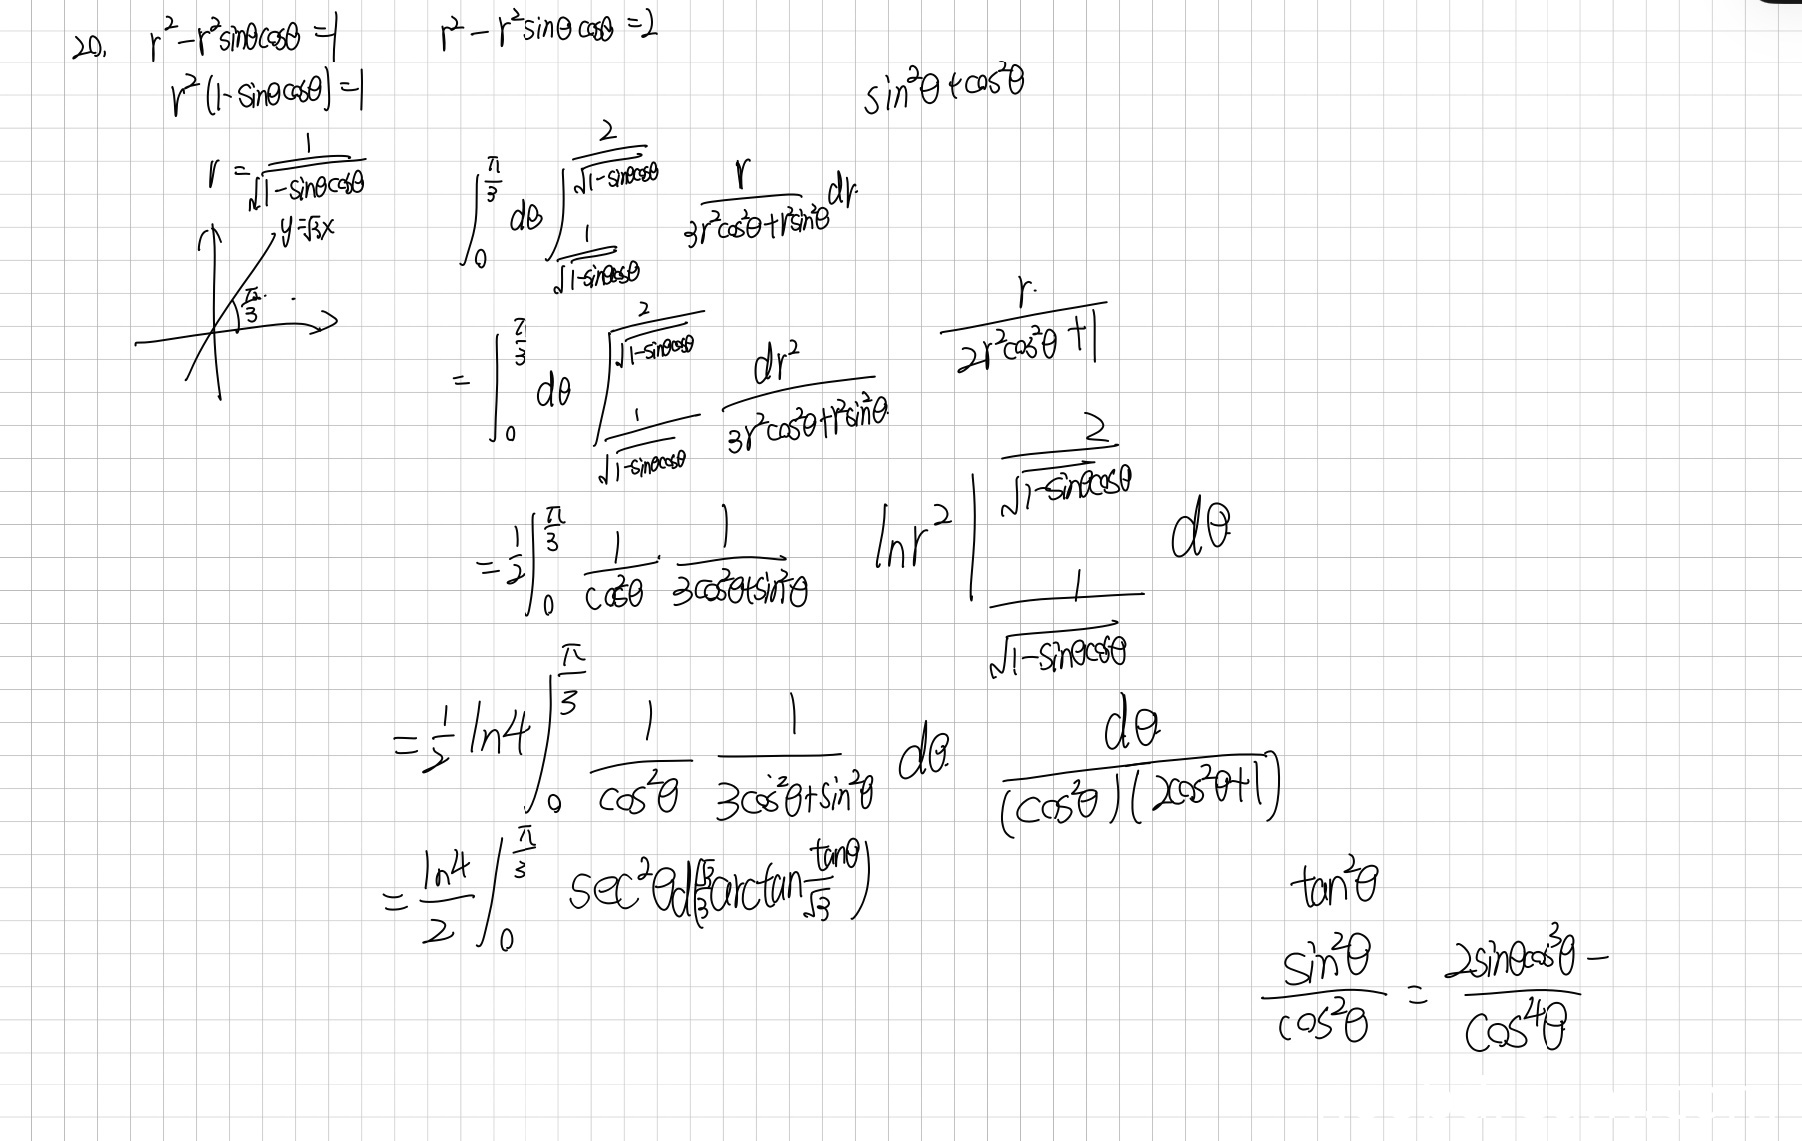 20. r²-r²sinθcosθ=1 r²-r²sinθcosθ=2
r²(1-sinθcosθ)=1
sin²θ+cos²θ
r=1/√(1-sinθcosθ)
y=√3x
π/3
∫_0^{π/3} dθ ∫_{1/√(1-sinθcosθ)}^{2/√(1-sinθcosθ)} r/(3r²cos²θ+r²sin²θ) dr
=∫_0^{π/3} dθ ∫_{1/√(1-sinθcosθ)}^{2/√(1-sinθcosθ)} dr²/(3r²cos²θ+r²sin²θ)
r/(2r²cos²θ+1)
=1/2 ∫_0^{π/3} 1/cos²θ · 1/(3cos²θ+sin²θ) lnr² |_{1/√(1-sinθcosθ)}^{2/√(1-sinθcosθ)} dθ
=1/2 ln4 ∫_0^{π/3} 1/cos²θ 1/(3cos²θ+sin²θ) dθ
dθ/((cos²θ)(2cos²θ+1))
=ln4/2 ∫_0^{π/3} sec²θd(√3/3 arctan tanθ/√3)
tan²θ
sin²θ/cos²θ = (2sinθcos³θ-)/cos⁴θ